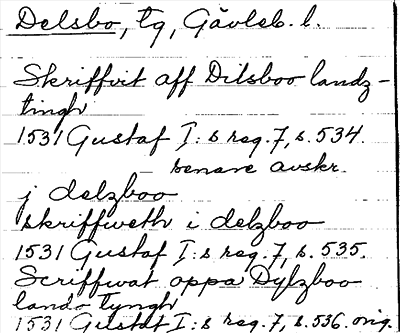 Delsbo, tg, Gävleb. l.
Skriffvit aff Dilsboo landz-
tingh
1531 Gustaf I:s reg. 7, s. 534.
senare avskr.
j delzboo
skriffweth i delzboo
1531 Gustaf I:s reg. 7, s. 535.
Scriffwat oppa Dylzboo
landz tyngh
1531 Gustaf I:s reg. 7, s. 536. orig.